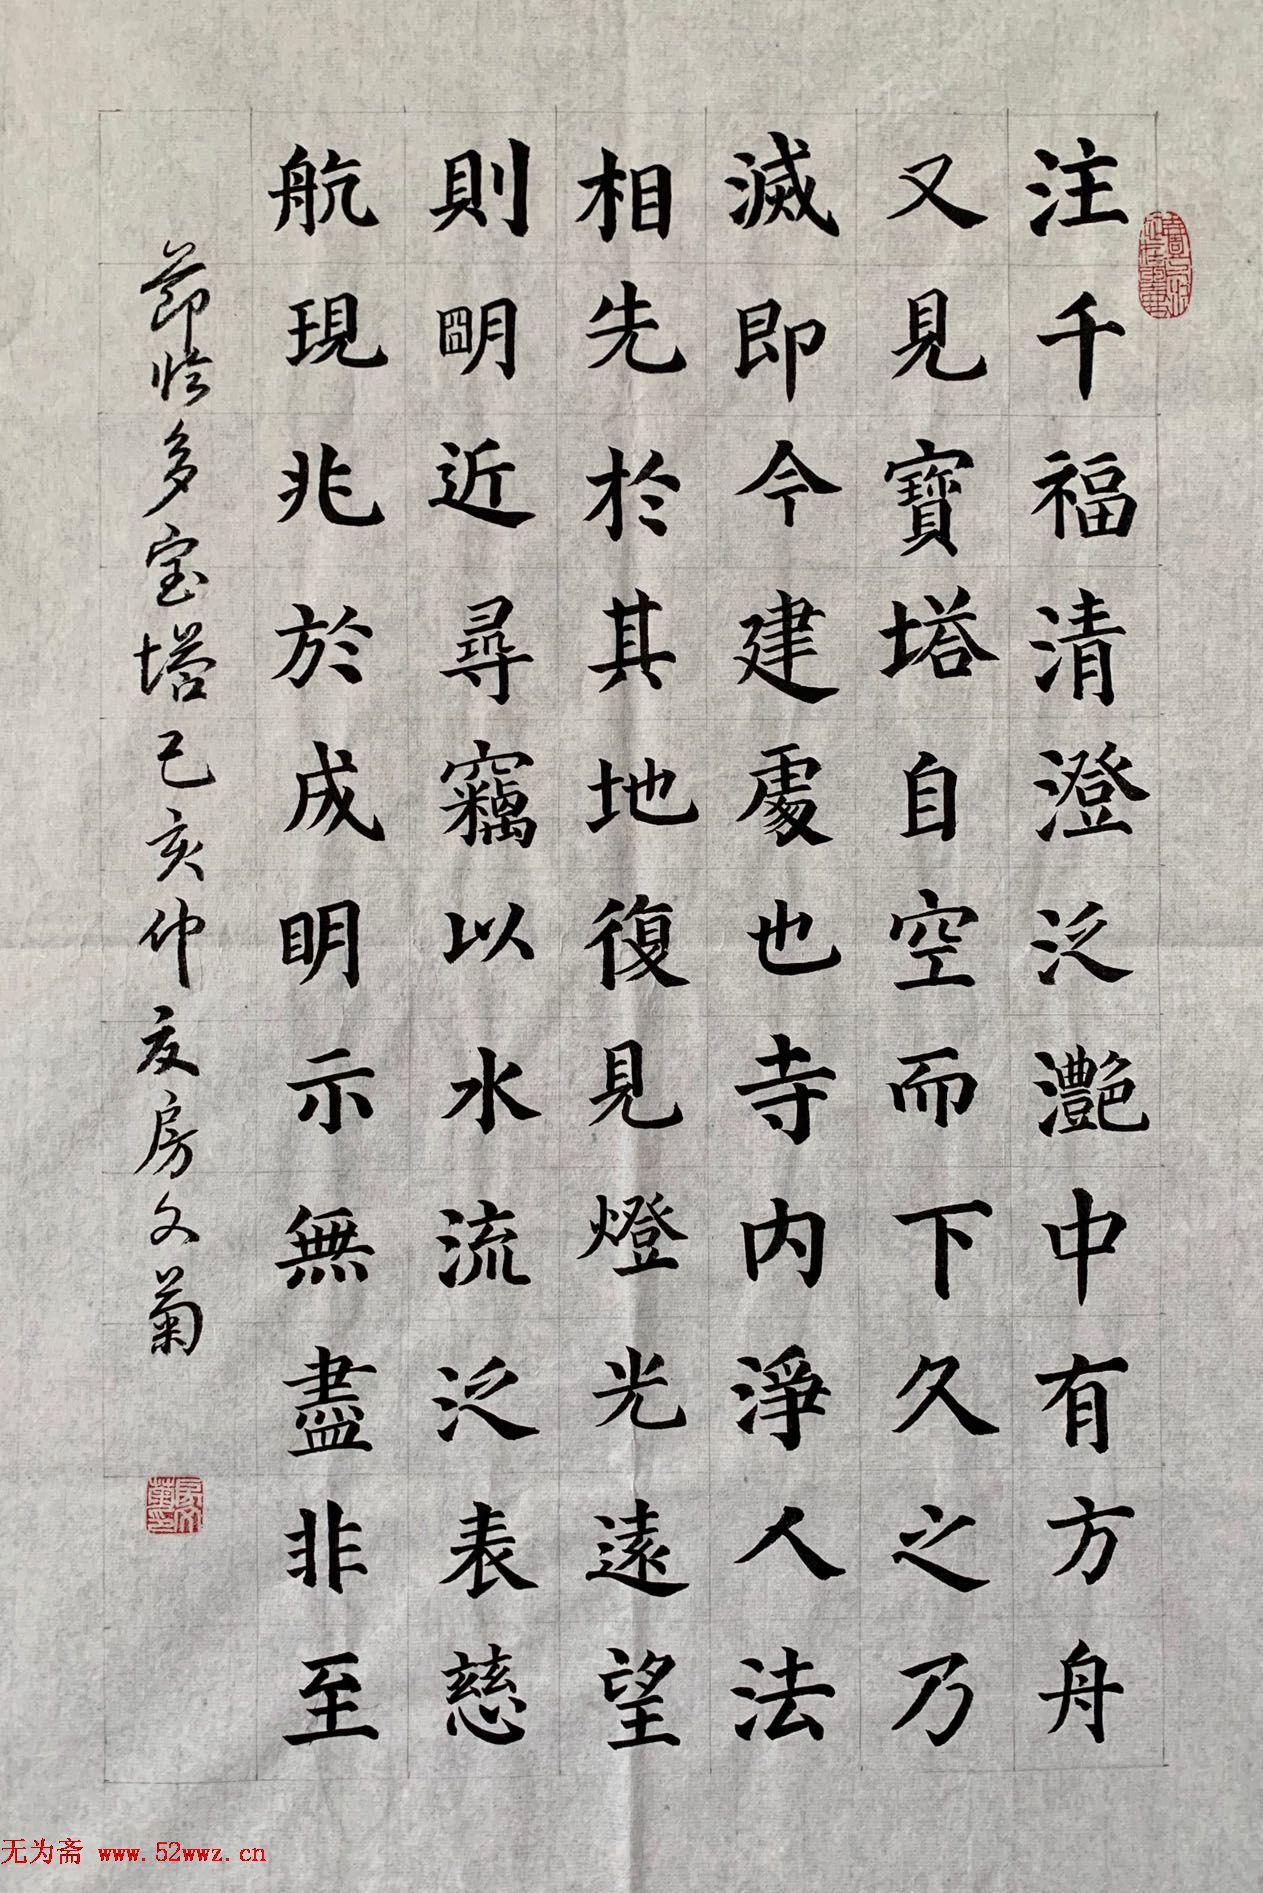 注千福清澄泛灔中有方舟
又見寶塔自空而下久之乃
滅即今建處也寺內淨人法
相先於其地復見燈光遠望
則朙近尋竊以水流泛表慈
航現兆於成明示無盡非至
節临多宝塔己亥仲夏房文菊
无为斋 www.52wwz.cn